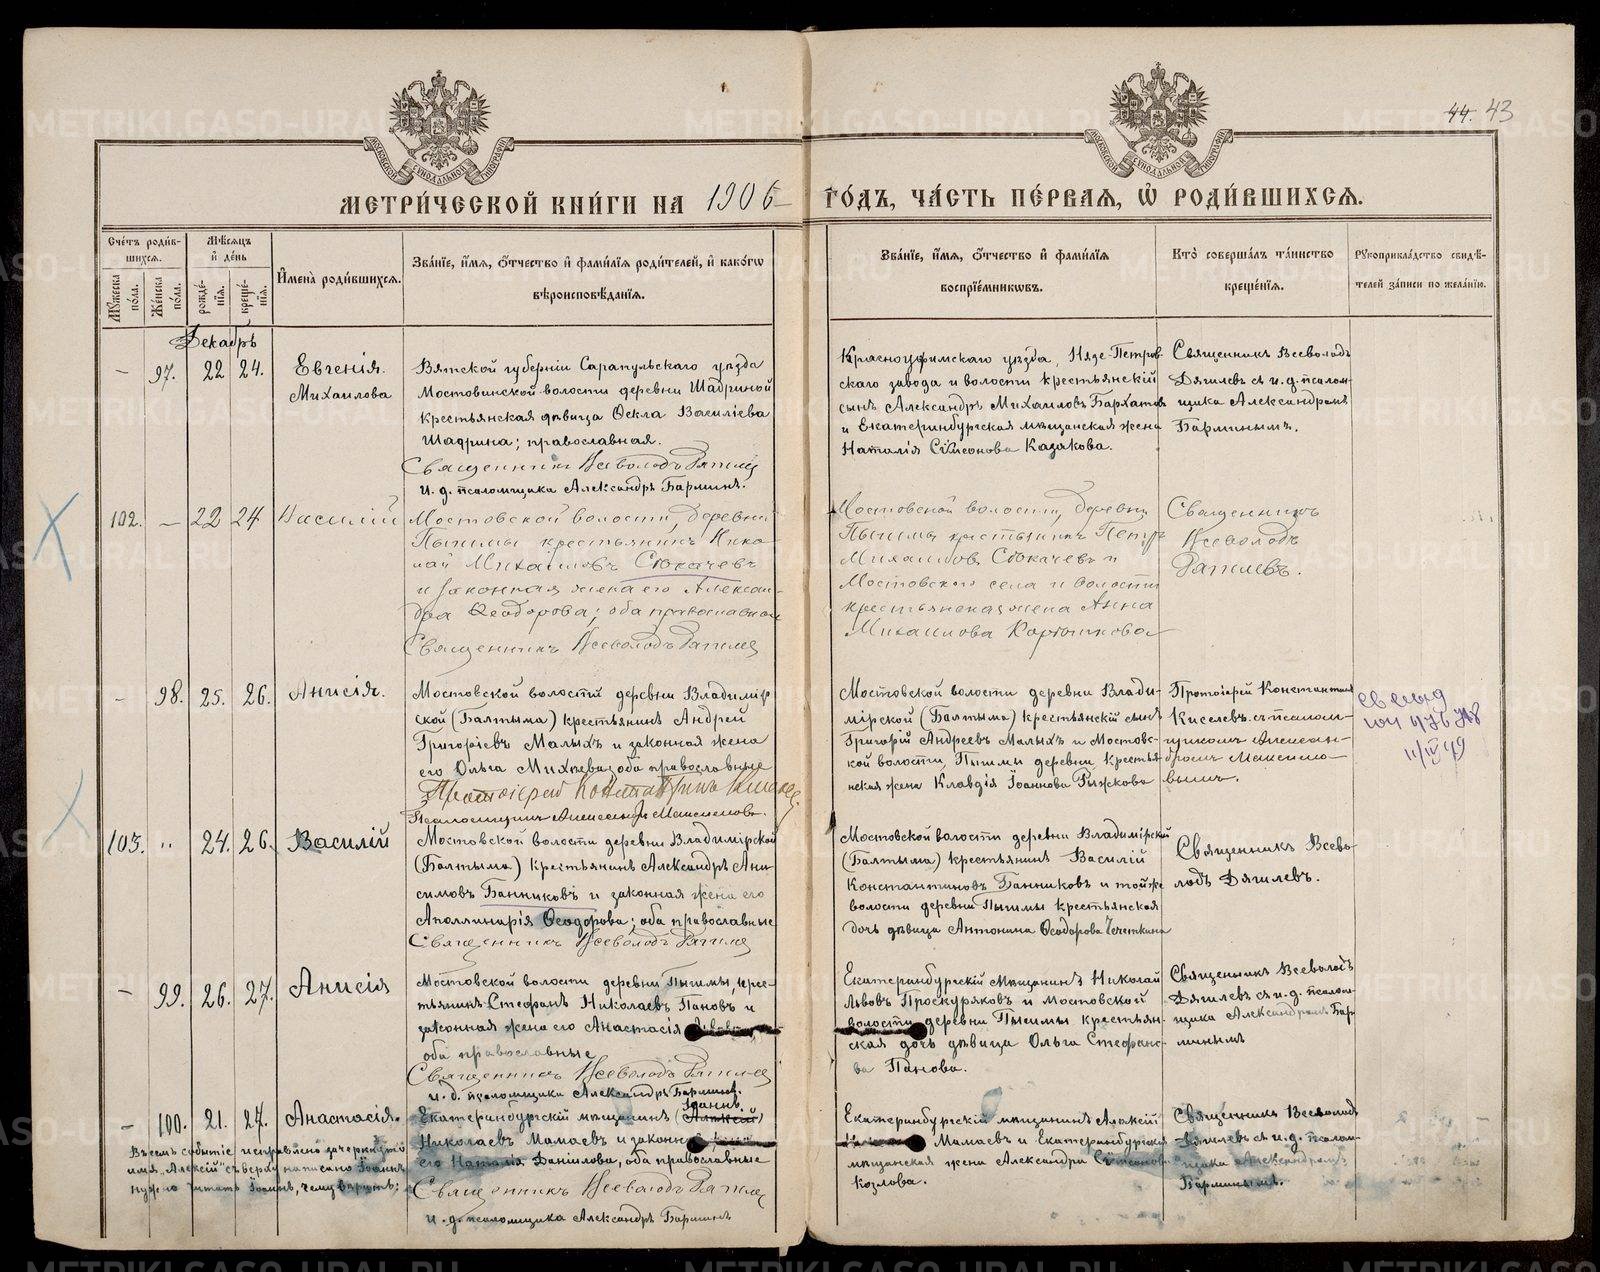 44. 43
МЕТРИ́ЧЕСКОЙ КНИ́ГИ НА 1906 ГО́ДЪ, ЧА́СТЬ ПЕ́РВАЯ, Ѡ҆ РОДИ́ВШИХСѦ.
Сче́тъ роди́в-
шихсѧ.
Мꙋ́жеска по́ла.
Же́нска по́ла.
Мѣ́сѧцъ
и҆ де́нь
рожде́-
нїѧ.
креще́-
нїѧ.
И҆мена̀ роди́вшихсѧ.
Зва́нїе, и҆́мѧ, ѻ҆́тчество и҆ фами́лїѧ роди́телей, и҆ како́гѡ
вѣроисповѣ́данїѧ.
Зва́нїе, и҆́мѧ, ѻ҆́тчество и҆ фами́лїѧ
воспрїе́мникѡвъ.
Кто̀ соверша́лъ та́инство
креще́нїѧ.
Рꙋкоприкла́дство свидѣ́-
телей за́писи по жела́нїю.
Декабрь
– 97. 22 24. Евгенія.
Михаилова
Вятской губерніи Сарапульскаго уѣзда
Мостовинской волости деревни Шадриной
крестьянская дѣвица Ѳекла Василіева
Шадрина; православная.
Священникъ Всеволодъ Дягилев
И. д. псаломщика Александръ Барминъ.
Красноуфимскаго уѣзда, Нязе-Петров-
скаго завода и волости крестьянскій
сынъ Александръ Михаиловъ Бархатов
и Екатеринбургская мѣщанская жена
Наталія Сѵмеонова Казакова.
Священникъ Всеволодъ
Дягилевъ съ и. д. псалом-
щика Александромъ
Барминымъ.
102. – 22 24 Василій
Мостовской волости, деревни
Пышмы крестьянинъ Нико-
лай Михаиловъ Сюкачевъ
и законная жена его Алексан-
дра Ѳеодорова; оба православные
Священникъ Всеволодъ Дягилев
Мостовской волости, деревни
Пышмы крестьянинъ Петръ
Михаиловъ Сюкачевъ и
Мостовского села и волости
крестьянская жена Анна
Михаилова Коргошкова
Священникъ
Всеволодъ
Дягилевъ.
– 98. 25. 26. Анисія.
Мостовской волости деревни Владимір-
ской (Балтыма) крестьянинъ Андрей
Григоріевъ Малыхъ и законная жена
его Ольга Михѣева, оба православные
Протоіерей Константинъ Киселев.
Псаломщикъ Алексей Максимовъ.
Мостовской волости деревни Влади-
мірской (Балтыма) крестьянскій сынъ
Григорій Андреевъ Малыхъ и Мостовс-
кой волости, Пышмы деревни, крестья-
нская жена Клавдія Іоаннова Рыжкова
Протоіерей Константинъ
Киселевъ съ псалом-
щикомъ
Максимо-
вымъ.
11/IV 49
103. " 24. 26. Василій
Мостовской волости деревни Владимірской
(Балтыма) крестьянинъ Александръ Ани-
симовъ Банниковъ и законная жена его
Аполлинарія Ѳеодорова; оба православные
Священникъ Всеволодъ Дягилев
Мостовской волости деревни Владимірской
(Балтыма) крестьянинъ Василій
Константиновъ Банниковъ и той же
волости деревни Пышмы крестьянская
дочь дѣвица Антонина Ѳеодорова Чечеткина
Священникъ Всево-
лодъ Дягилевъ.
– 99. 26. 27. Анисія
Мостовской волости деревни Пышмы, крес-
тьянинъ Стефанъ Николаевъ Пановъ и
законная жена его Анастасія
оба православные
Священникъ Всеволодъ Дягилев
и. д. псаломщика Александръ Барминъ.
Екатеринбургскій мѣщанинъ Николай
Львовъ Проскуряковъ и Мостовской
волости деревни Пышмы крестьян-
ская дочь дѣвица Ольга Стефано-
ва Панова.
Священникъ Всеволодъ
Дягилевъ съ и. д. псалом-
щика Александромъ Бар-
минымъ
– 100. 21. 27. Анастасія.
Въ семъ событіе исправлено зачеркнуто
имя "Алексій" сверху написано Іоаннъ,
нужно читать Іоаннъ, чему вѣрить;
Іоаннъ
Екатеринбургскій мѣщанинъ (Алексій)
Николаевъ Мамаевъ и законная
его Наталія Даніилова, оба православные
Священникъ Всеволодъ Дягилев
и. д. псаломщика Александръ Барминъ
Екатеринбургскій мѣщанинъ Алексій
Мамаевъ и Екатеринбургская
мѣщанская жена Александра
Козлова.
Священникъ Всеволодъ
Дягилевъ съ и. д. псалом-
щика Александромъ
Барминымъ.
METRIKI.GASO-URAL.RU